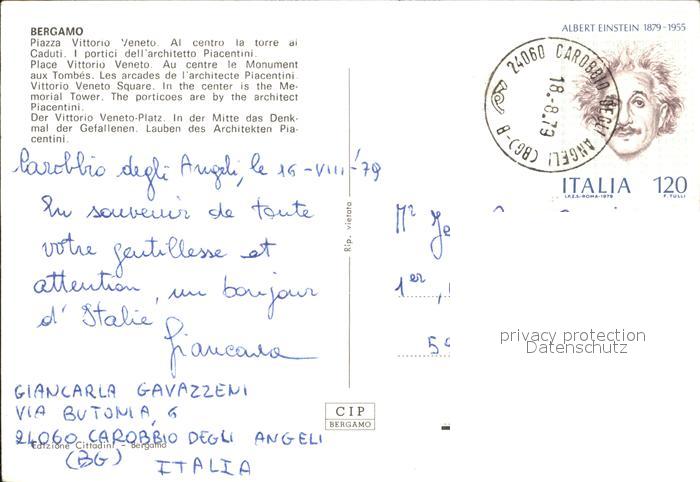 BERGAMO
Piazza Vittorio Veneto. Al centro la torre ai
Caduti. I portici dell'architetto Piacentini.
Place Vittorio Veneto. Au centre le Monument
aux Tombés. Les arcades de l'architecte Piacentini.
Vittorio Veneto Square. In the center is the Me-
morial Tower. The porticoes are by the architect
Piacentini.
Der Vittorio Veneto-Platz. In der Mitte das Denk-
mal der Gefallenen. Lauben des Architekten Pia-
centini.
Carobbio degli Angeli, le 16-VIII-'79
En souvenir de toute
votre gentillesse et
attention, un bonjour
d'Italie
Giancarla
GIANCARLA GAVAZZENI
VIA BUTONIA, 6
24060 CAROBBIO DEGLI ANGELI
(BG) ITALIA
Edizione Cittadini - Bergamo
Rip. vietata
CIP
BERGAMO
ALBERT EINSTEIN 1879-1955
24060 CAROBBIO DEGLI ANGELI (BG)-B
18.-8.79
ITALIA 120
I.P.Z.S.-ROMA-1979 F. TULLI
Mr Je
1er,
59
privacy protection
Datenschutz